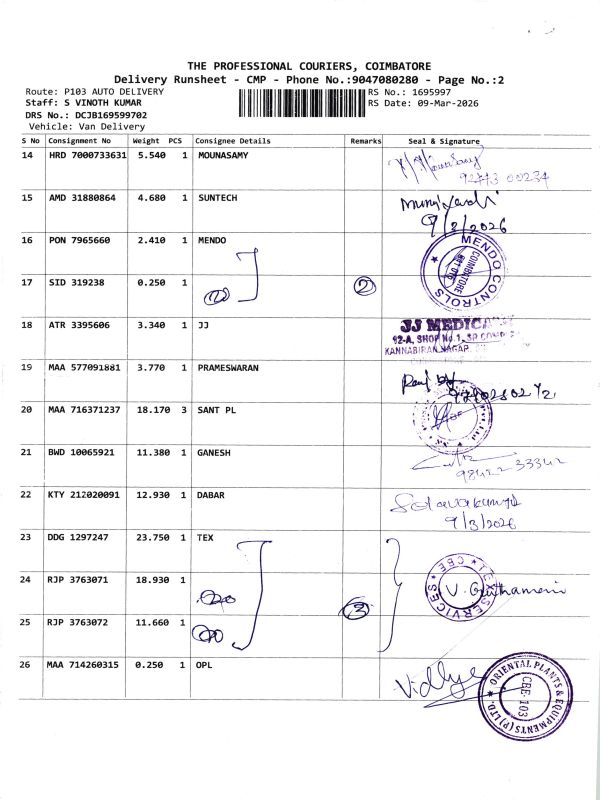 THE PROFESSIONAL COURIERS, COIMBATORE
Delivery Runsheet - CMP - Phone No.:9047080280 - Page No.:2
Route: P103 AUTO DELIVERY
RS No.: 1695997
Staff: S VINOTH KUMAR
RS Date: 09-Mar-2026
DRS No.: DCJB169599702
Vehicle: Van Delivery
S No Consignment No Weight PCS Consignee Details Remarks Seal & Signature
14 HRD 7000733631 5.540 1 MOUNASAMY
15 AMD 31880864 4.680 1 SUNTECH
9/3/2026
16 PON 7965660 2.410 1 MENDO
MENDO CONTROLS
COIMBATORE
17 SID 319238 0.250 1 2
18 ATR 3395606 3.340 1 JJ
JJ MEDICA
92-A, SHOP No.1, SP
KANNABIRAN NAGAR
19 MAA 577091881 3.770 1 PRAMESWARAN
20 MAA 716371237 18.170 3 SANT PL
21 BWD 10065921 11.380 1 GANESH
98422 33342
22 KTY 212020091 12.930 1 DABAR
9/3/2026
23 DDG 1297247 23.750 1 TEX
24 RJP 3763071 18.930 1
3
TEX SERVICES
CBE
25 RJP 3763072 11.660 1
26 MAA 714260315 0.250 1 OPL
Vidhya
ORIENTAL PLANTS & EQUIPMENTS (P) LTD.
CBE-103